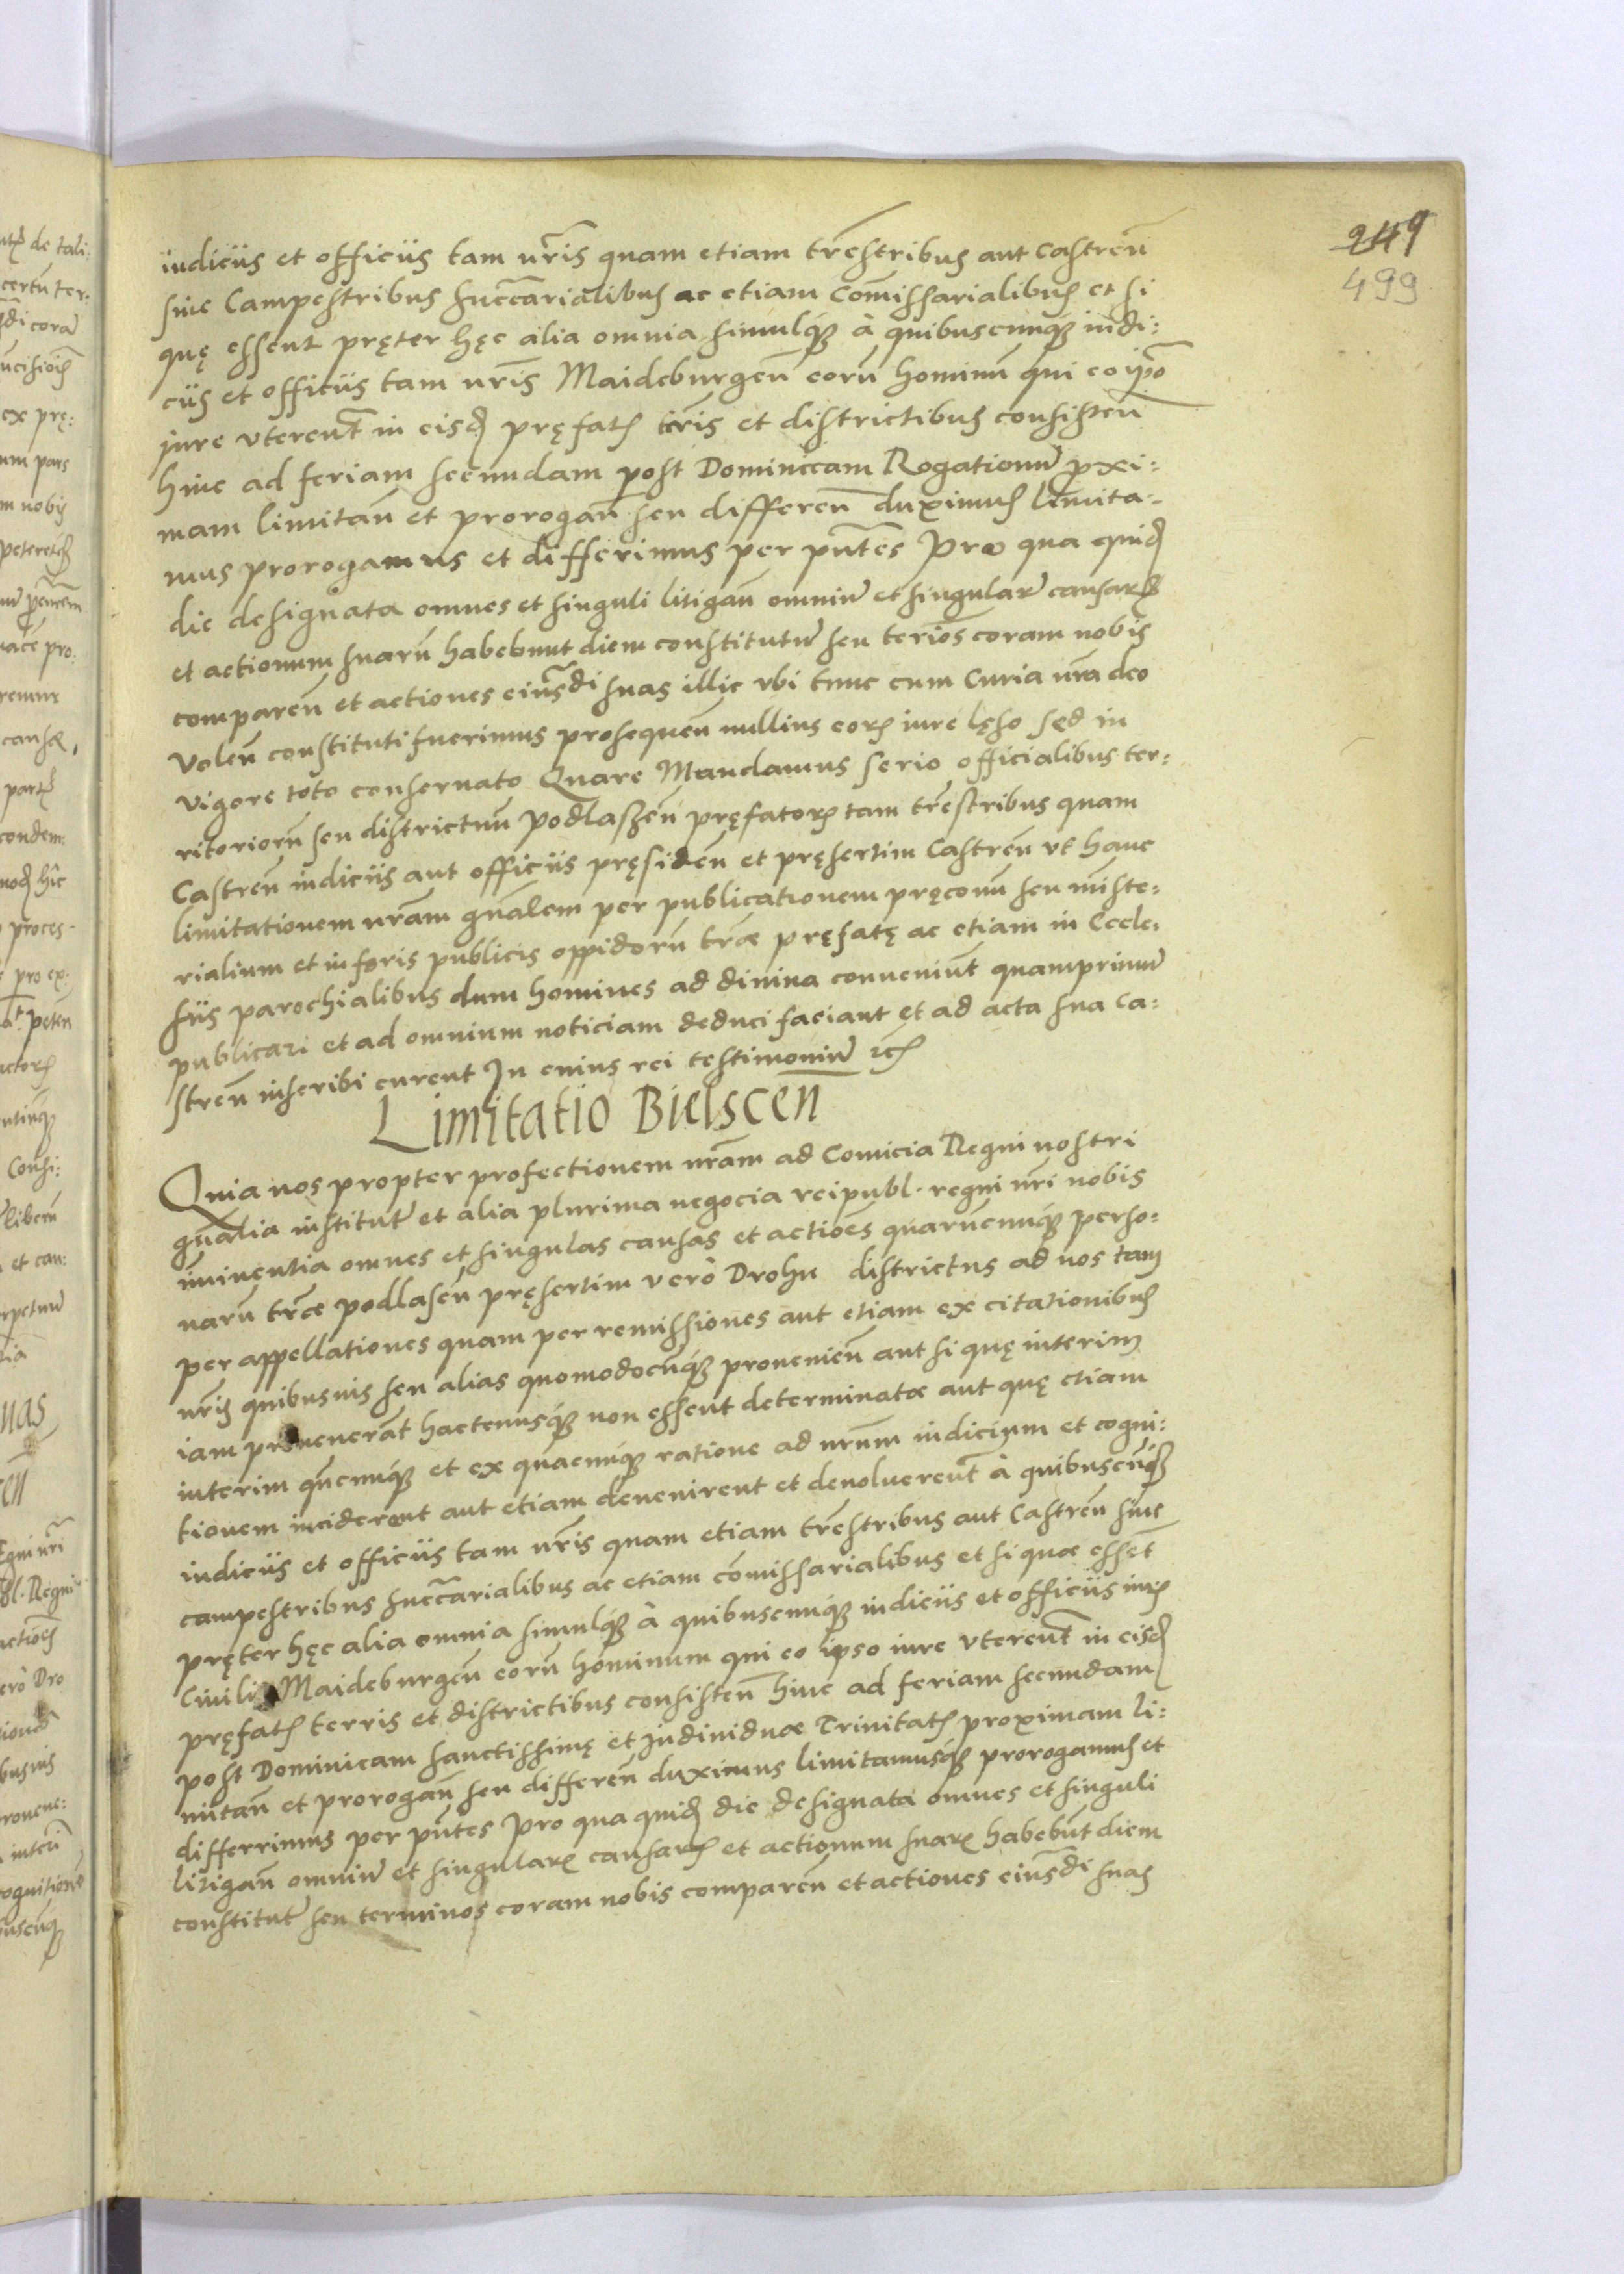 249
499
iudiciis et officiis tam nr̃is quam etiam tr̃estribus aut Castren̄
siue Campestribus succ̃arialibus ac etiam Com̄issarialibus et si
quę essent pręter hęc alia omnia simulq́ꝫ à quibuscunq́ꝫ iudi:
ciis et officiis tam nr̃is Maideburgen̄ eorū hominū qui eo ip̄o
jure vterent̃ in eisđ pręfatꝭ tr̃is et districtibus consisten̄
hinc ad feriam secundam post Dominicam Rogationū ꝓxi:
mam limitan̄ et prorogan̄ seu differen̄ duximus limita:
mus prorogamus et differimus per pñtes Pro qua quiđ
die designata omnes et singuli litigan̄ omniū et singularū causarꝝ
et actionum suarū habebunt diem constitutū seu ter̃ios coram nobis
comparen̄ et actiones eiusd̃i suas illic vbi tunc cum Curia nr̃a deo
volen̄ constituti fuerimus prosequen̄ nullius eorꝝ iure lęso sed in
vigore toto conseruato Quare Mandamus serio officialibus ter:
ritoriorū seu districtuū podlaßen̄ pręfatorꝝ tam tr̃estribus quam
Castren̄ iudiciis aut officiis pręsiden̄ et pręsertim Castren̄ vt hanc
limitationem nr̃am gn̄alem per publicationem pręconū seu miñste:
rialium et in foris publicis oppidorū tr̃æ pręfatę ac etiam in Eccle:
siis parochialibus dum homines ad diuina conueniunt quamprimū
publicari et ad omnium noticiam deduci faciant et ad acta sua Ca:
stren̄ inscribi curent In cuius rei testimoniū ꝛcꝭ
Limitatio Bielscen̄
Quia nos propter profectionem nr̃am ad Comicia Regni nostri
gn̄alia institutū et alia plurima negocia reipubl. regni nr̃i nobis
im̄inentia omnes et singulas causas et actiões quarūcunq́ꝫ perso:
narū tr̃ae podlasen̄ pręsertim verò Drohu districtus ad nos tam
per appellationes quam per remissiones aut etiam ex citationibus
nr̃is quibusuis seu alias quomodocūq́ꝫ prouenien̄ aut si quę interim
iam prouenerant hactenusq́ꝫ non essent determinatæ aut quę etiam
interim quēcunq́ꝫ et ex quacunq́ꝫ ratione ad nr̃um iudicium et cogni:
tionem inciderent aut etiam deuenirent et deuoluerent̃ à quibuscūq́ꝫ
iudiciis et officiis tam nr̃is quam etiam tr̃estribus aut Castren̄ siue
campestribus succ̃arialibus ac etiam com̄issarialibus et si quæ essēt
pręter hęc alia omnia simulq́ꝫ à quibuscunq́ꝫ iudiciis et officiis iurꝭ
Ciuilis Maideburgen̄ eorū hominum qui eo ipso iure vterent̃ in eisđ
pręfatꝭ terris et districtibus consisten̄ hinc ad feriam secundam
post Dominicam sanctissimę et Indiuiduæ Trinitatꝭ proximam li:
mitan̄ et prorogan̄ seu differen̄ duximus limitamusq́ꝫ prorogamus et
differrimus per pñtes Pro qua quiđ die designata omnes et singuli
litigan̄ omniū et singularꝝ causarꝝ et actionum suarꝝ habebūt diem
constitutū seu terminos coram nobis comparen̄ et actiones eiusd̃i suas